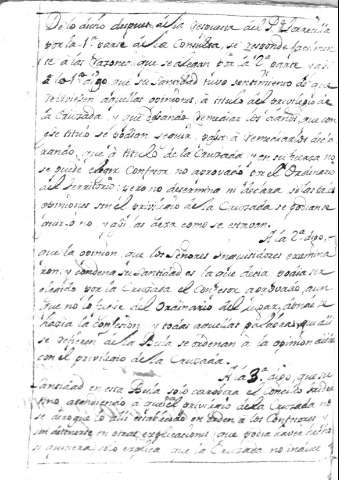 De lo dicho despues de la respuesta del P. Torrecilla
por la 1ª parte de la Consulta, se responde facilmen
te à las razones que se alegan por la 2ª parte
à lo 1º digo que su Santidad tuvo sentimiento de que
aquellas opiniones, à titulo del privilegio de
la Cruzada y que deseando remediar los daños, que con
ese titulo se podian seguir, passò à remediarlos decla
rando, que à titulo de la Cruzada y en su fuerza no
se puede elegir Confesor no aprovado en el Ordinario
del territorio; pero no determina ni declara si las tales
opiniones sin el privilegio de la Cruzada se podian
ò no y assi las dexa como se estavan.
A la 2ª digo,
que la opinion, que los Señores Inquisidores examina
ron, y condenò su Santidad es la que decia podia ser
elegido por la Cruzada el Confesor aprovado, aun
que no lo fuese del Ordinario del lugar, donde se
hazia la confesion, y todas aquellas palabras, que alli
se refieren de la Bula se ordenan à la opinion dicha
con el privilegio de la Cruzada.
A la 3ª digo, que su
Santidad en esta Bula solo corrobora el Concilio Triden
tino atendiendo à que el privilegio de la Cruzada no
se deroga lo alli establecido en orden à los Confesores y
sin detenerse en otras explicaciones, que podia haver
solo explica que la Cruzada no induce